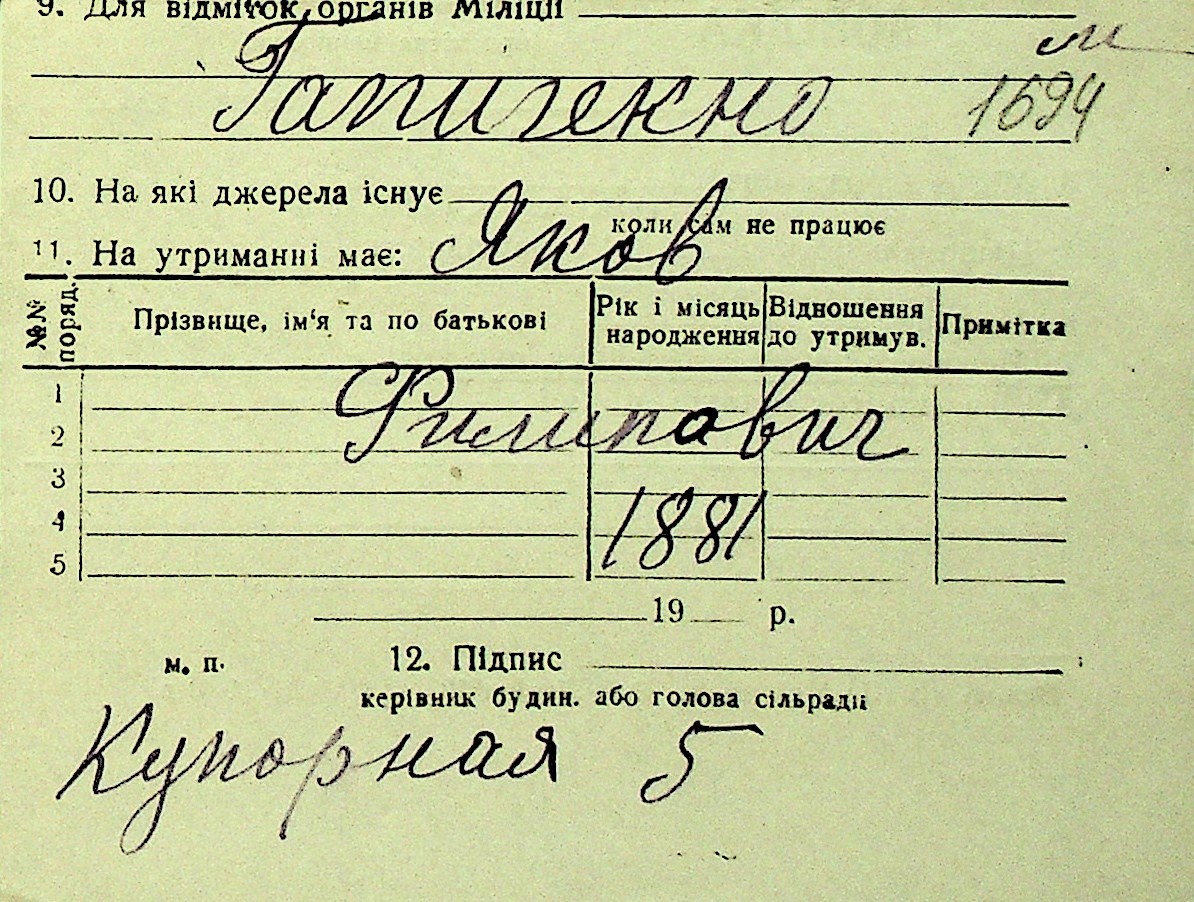 9. Для відміток органів Міліції
м
1694
10. На які джерела існує
коли сам не працює
11. На утриманні має: Яков
№№ поряд.
Прізвище, ім‘я та по батькові
Рік і місяць народження
Відношення до утримув.
Примітка
1
2
Филипович
3
4
1881
5
19 р.
м. п.
12. Підпис
керівник будин. або голова сільради
Купорная 5